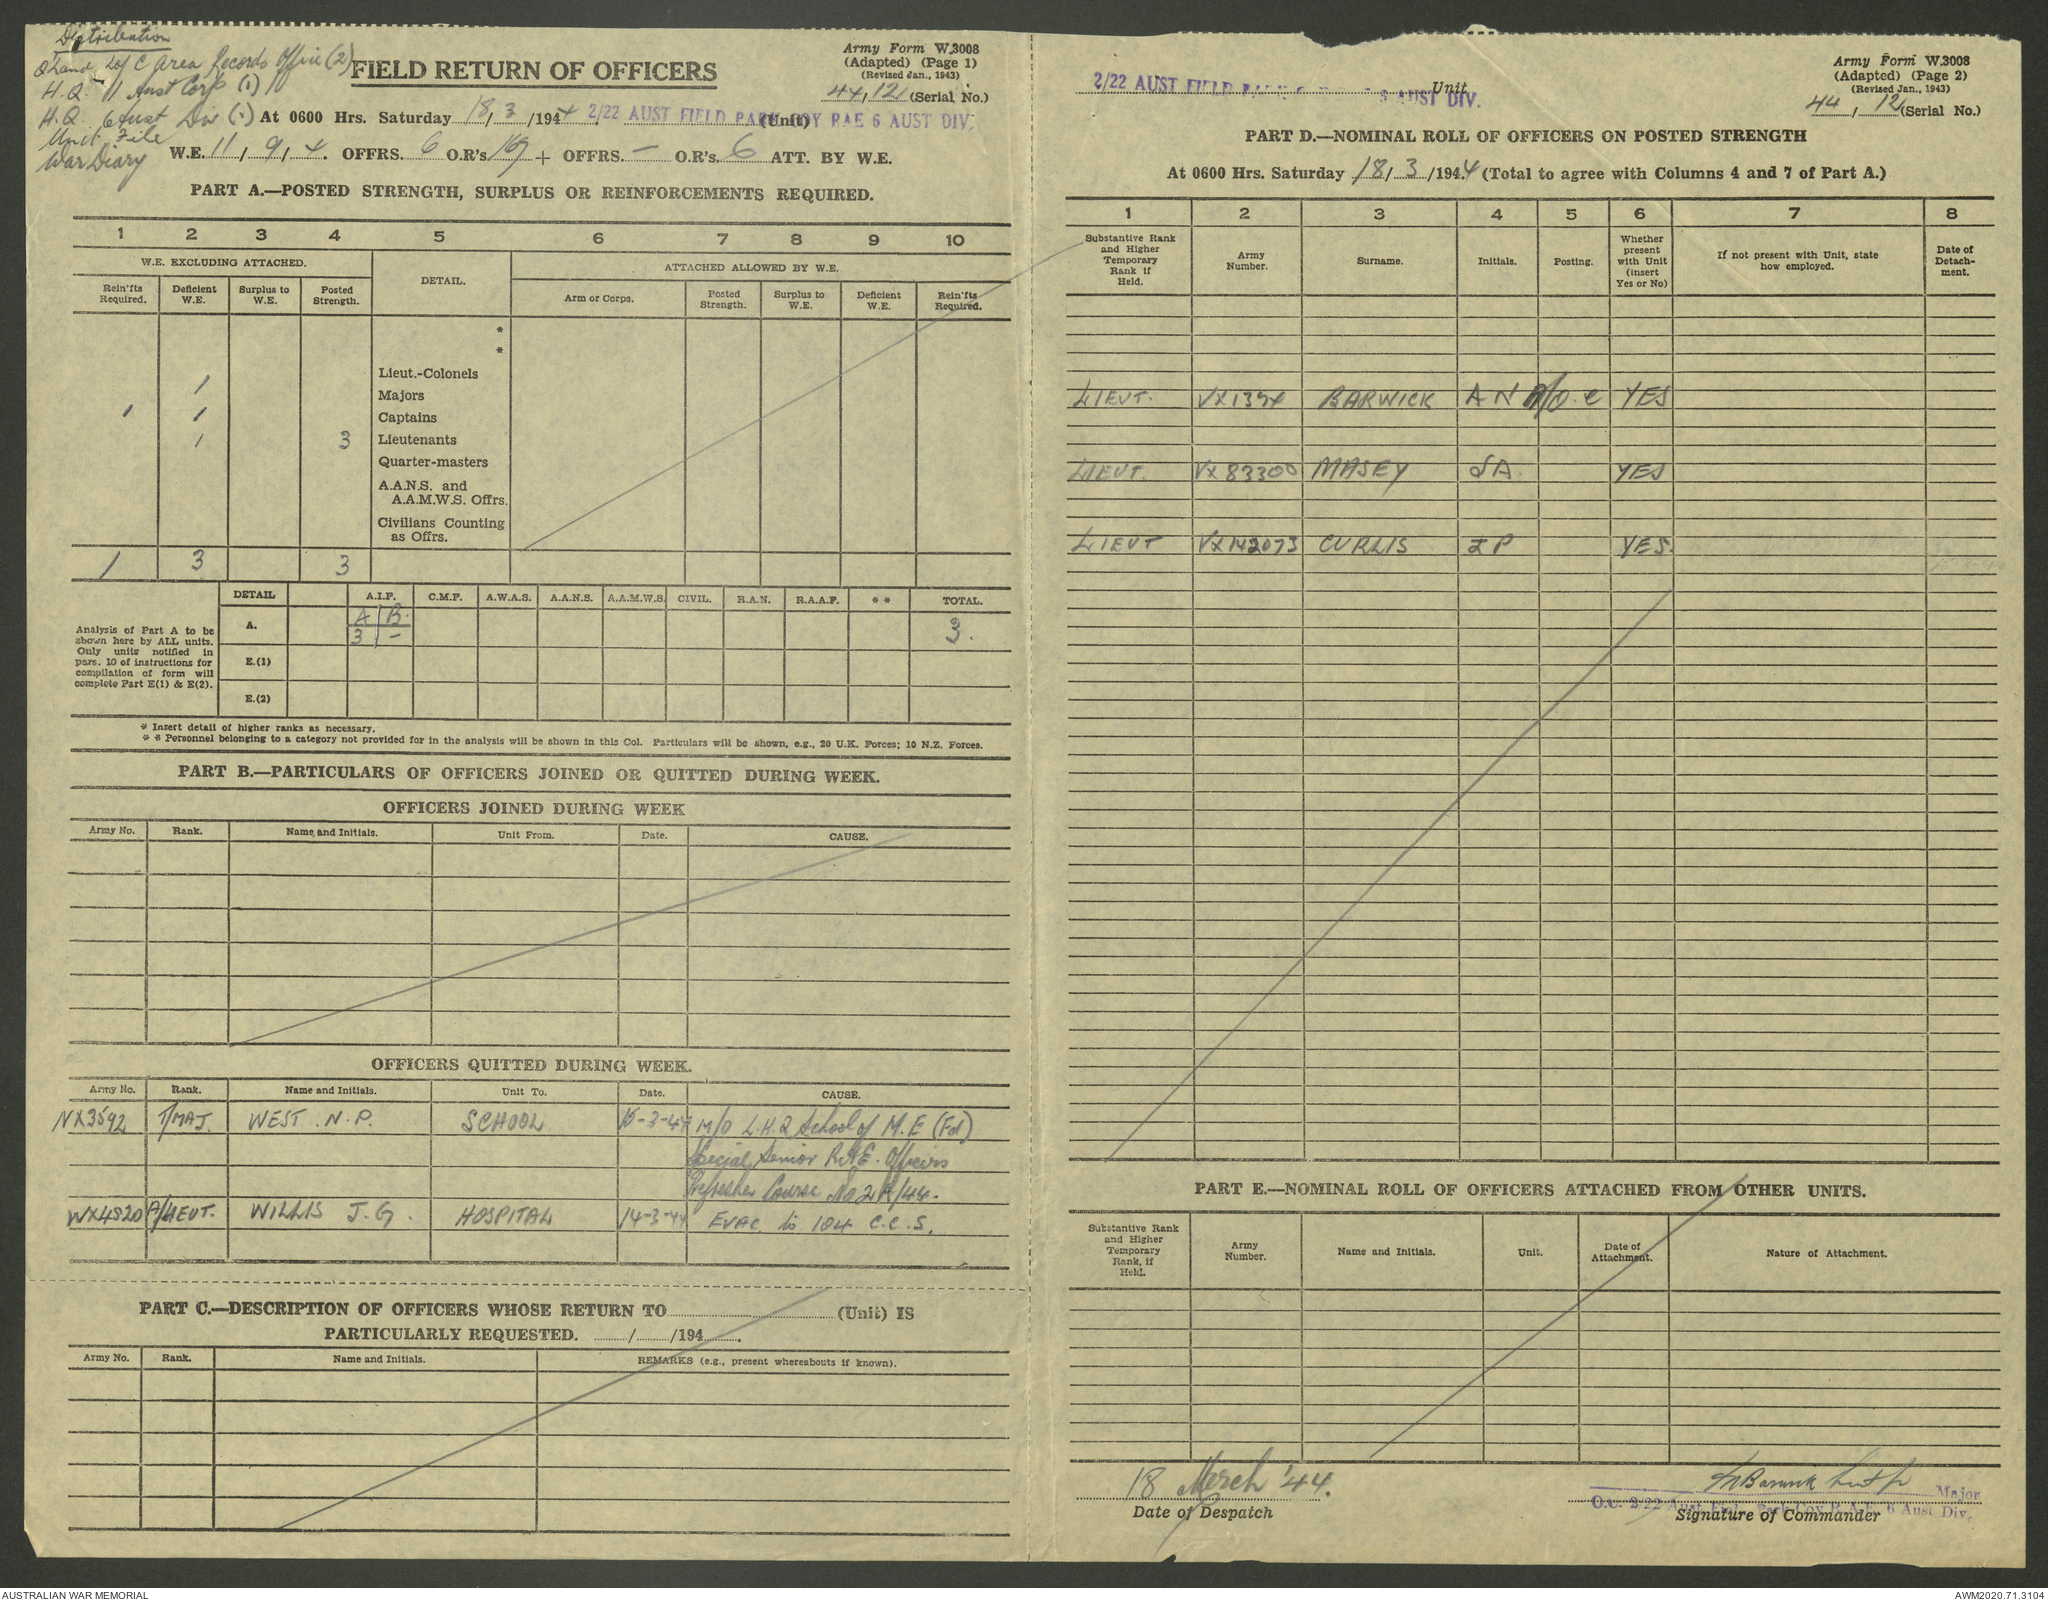 Distribution
Qland L of C Area Records Office (2)
H.Q. 11 Aust Corp (1)
H.Q. 6 Aust Div (1)
Unit File
War Diary
FIELD RETURN OF OFFICERS
Army Form W.3008
(Adapted) (Page 1)
(Revised Jan., 1943)
44, 12 (Serial No.)
At 0600 Hrs. Saturday 18, 3 /1944. 2/22 AUST FIELD PARK COY RAE 6 AUST DIV. (Unit)
W.E. 11, 9, 4. OFFRS. 6 O.R's 169 + OFFRS. — O.R's. 6 ATT. BY W.E.
PART A.—POSTED STRENGTH, SURPLUS OR REINFORCEMENTS REQUIRED.
1 2 3 4 5 6 7 8 9 10
W.E. EXCLUDING ATTACHED. DETAIL. ATTACHED ALLOWED BY W.E.
Rein'fts Required. Deficient W.E. Surplus to W.E. Posted Strength. Arm or Corps. Posted Strength. Surplus to W.E. Deficient W.E. Rein'fts Required.
*
*
Lieut.-Colonels
1 Majors
1 1 Captains
1 3 Lieutenants
Quarter-masters
A.A.N.S. and
A.A.M.W.S. Offrs.
Civilians Counting
as Offrs.
1 3 3
DETAIL A.I.F. C.M.F. A.W.A.S. A.A.N.S. A.A.M.W.S. CIVIL. R.A.N. R.A.A.F. * * TOTAL.
Analysis of Part A to be
shown here by ALL units.
Only units notified in
para. 10 of instructions for
compilation of form will
complete Part E(1) & E(2).
A. A B
3 — 3.
E.(1)
E.(2)
* Insert detail of higher ranks as necessary.
* * Personnel belonging to a category not provided for in the analysis will be shown in this Col. Particulars will be shown, e.g., 20 U.K. Forces; 10 N.Z. Forces.
PART B.—PARTICULARS OF OFFICERS JOINED OR QUITTED DURING WEEK.
OFFICERS JOINED DURING WEEK
Army No. Rank. Name and Initials. Unit From. Date. CAUSE.
OFFICERS QUITTED DURING WEEK.
Army No. Rank. Name and Initials. Unit To. Date. CAUSE.
NX3592 T/MAJ. WEST. N.P. SCHOOL 15-3-44 M/O L.H.Q School of M.E (Fd)
Special Senior RAE. Officers
Refresher Course No 2A/44.
WX4520 A/LIEUT. WILLIS J.G. HOSPITAL 14-3-44 EVAC to 104 C.C.S.
PART C.—DESCRIPTION OF OFFICERS WHOSE RETURN TO (Unit) IS
PARTICULARLY REQUESTED. / /194 .
Army No. Rank. Name and Initials. REMARKS (e.g., present whereabouts if known).
2/22 AUST FIELD PARK AUST DIV. Unit
Army Form W.3008
(Adapted) (Page 2)
(Revised Jan., 1943)
44, 12 (Serial No.)
PART D.—NOMINAL ROLL OF OFFICERS ON POSTED STRENGTH
At 0600 Hrs. Saturday 18, 3 /1944 (Total to agree with Columns 4 and 7 of Part A.)
1 2 3 4 5 6 7 8
Substantive Rank and Higher Temporary Rank if Held. Army Number. Surname. Initials. Posting. Whether present with Unit (insert Yes or No) If not present with Unit, state how employed. Date of Detach-ment.
LIEUT. VX1394 BARWICK A N A/O.C YES
LIEUT. VX83300 MASEY J A. YES
LIEUT VX142073 CURLIS I P YES
PART E.—NOMINAL ROLL OF OFFICERS ATTACHED FROM OTHER UNITS.
Substantive Rank and Higher Temporary Rank, if Held. Army Number. Name and Initials. Unit. Date of Attachment. Nature of Attachment.
18 March '44.
Date of Despatch
Barwick Lieut Major
O.C. 2/22 Aust Field Park Coy R.A.E. 6 Aust Div.
Signature of Commander
AUSTRALIAN WAR MEMORIAL
AWM2020.71.3104